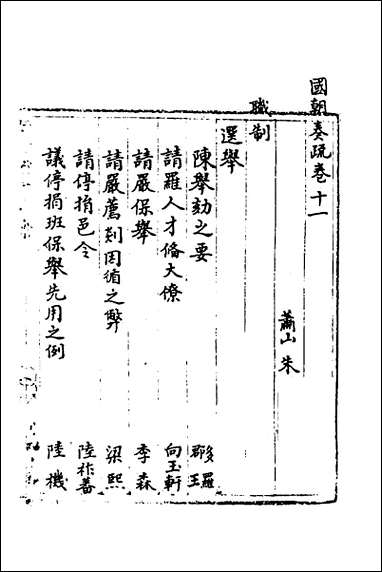 國朝奏疏卷十一
蕭山 朱
職制
選舉
陳舉劾之要 多羅郡王
請羅人才備大僚 向玉軒
請嚴保舉 李森
請嚴薦剡因循之弊 梁熙
請停捐邑令 陸祚蕃
議停捐班保舉先用之例 陸機